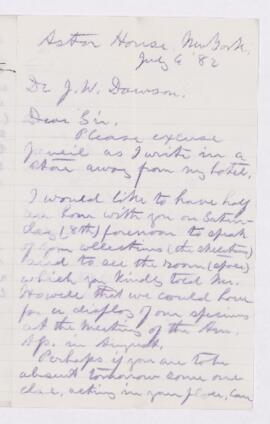 Astor House, New York.
July 6 '82
Dr J. W. Dawson.
Dear Sir.
Please excuse
pencil as I write in a
store away from my hotel.
I would like to have half
an hour with you on Satur-
day (8th) forenoon to speak
of your collections (the skeletons)
and to see the room (space)
which you kindly told Mr.
Howell that we could have
for a display of our specimens
at the Meeting of the Am.
As. in August.
Perhaps if you are to be
absent tomorrow some one
else, acting in your place, can